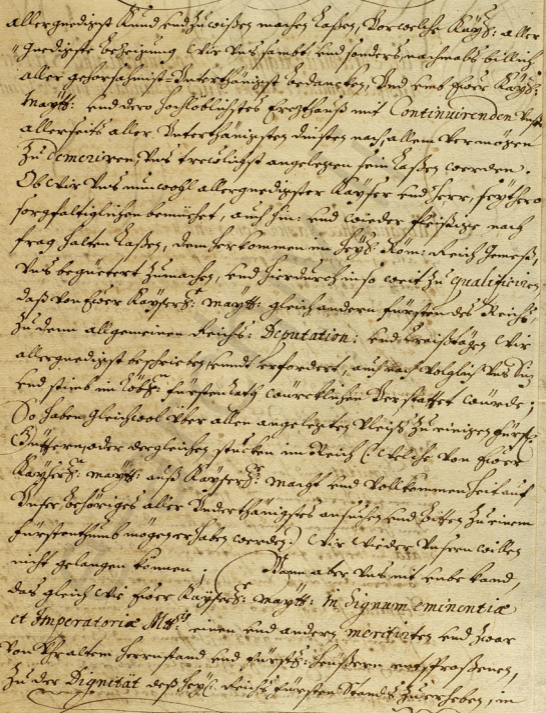 allergnedigist kund und zu wißen machen laßen, Vor welche Kayß: aller
gnedigste bezeigung wir Uns sambt und sonders, nachmals billich
aller gehorsahmist Unterthänigist bedancken, Und umb Euer Kayß:
Maytt: und dero hochlöblichstes Erzhauß mit Continuirenden
allerseits aller Unterthänigsten dinsten nach allem vermögen
zu demeriren, Uns treulichist angelegen sein laßen werden.
Ob wir Uns nun wohl allergnedigster Kayser und Herr, seithero
sorgfältiglichen bemühet, auch hin und wieder fleißige nach
frag halten laßen, dem herkommen im Heyl: Röm: Reich gemeß,
Uns begüetert zumachen, und hierdurch in so weit zu qualificiren,
daß von Euer Kayserl: Maytt: gleich andern fürsten des Reichs,
zu denn allgemeinen Reichs: Deputation: und Kraißtägen wir
allergnedigist beschrieben und erfordert, auch nach volglich Uns
und stimb im fürstenrath würcklichen verstattet würde;
So haben gleichwol über allen angelegten vleiß zu einigen
Güttern, oder dergleichen stucken im Reich (: welche von Euer
Kayserl: Maytt: auß Kayserl: macht und vollkommenheit auf
Unser gehöriges aller Underthänigstes ansuchen und bitten zu einem
fürstenthumb mögen erhaben werden:) wir wieder Unsern willen
nicht gelangen können; Wann aber Uns mit ende kand,
das gleich wie Euer Kayserl: Maytt: in Signum eminentiæ
et Imperatoriæ einen und andern meritirten und zwar
von Uhraltem herrnstand und fürstl: heußern entsproßenen,
zu der Dignität deß Heyl: Reichs fürsten Stands zu erheben, in